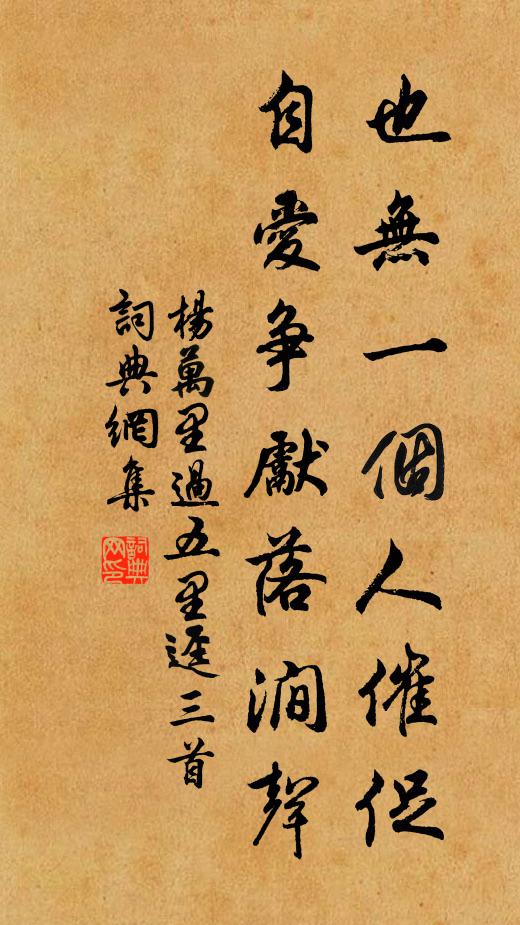 也無一個人催促
自愛爭獻落澗聲
楊萬里過五里逕三首
詞典網集
詞典網印